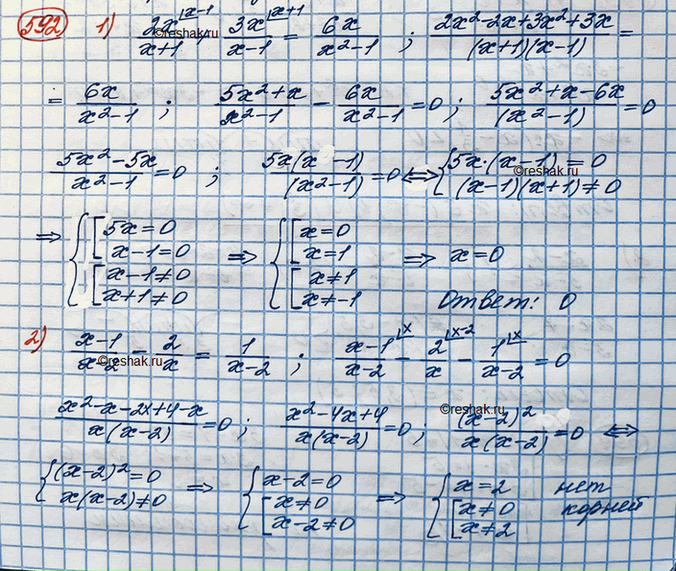 592 1) 2x^{|x-1}/(x+1) + 3x^{|x+1}/(x-1) = 6x/(x²-1) ; (2x²-2x+3x²+3x)/((x+1)(x-1)) =
= 6x/(x²-1) ; (5x²+x)/(x²-1) - 6x/(x²-1) = 0 ; (5x²+x-6x)/(x²-1) = 0
(5x²-5x)/(x²-1) = 0 ; 5x(x-1)/(x²-1) = 0 ⟺ { 5x·(x-1) = 0
(x-1)(x+1) ≠ 0
⇒ { [ 5x = 0 ⇒ { [ x = 0 ⇒ x = 0
x-1 = 0 x = 1
[ x-1 ≠ 0 [ x ≠ 1
x+1 ≠ 0 x ≠ -1 Ответ: 0
2) (x-1)/(x-2) - 2/x = 1/(x-2) ; (x-1)^{|x}/(x-2) - 2^{|x-2}/x - 1^{|x}/(x-2) = 0
(x²-x-2x+4-x)/(x(x-2)) = 0 ; (x²-4x+4)/(x(x-2)) = 0 ; (x-2)²/(x(x-2)) = 0 ⟺
{ (x-2)² = 0 ⇒ { x-2 = 0 ⇒ { x = 2 нет
x(x-2) ≠ 0 [ x ≠ 0 [ x ≠ 0 корней
x-2 ≠ 0 x ≠ 2
©reshak.ru
©reshak.ru
©reshak.ru
©reshak.ru